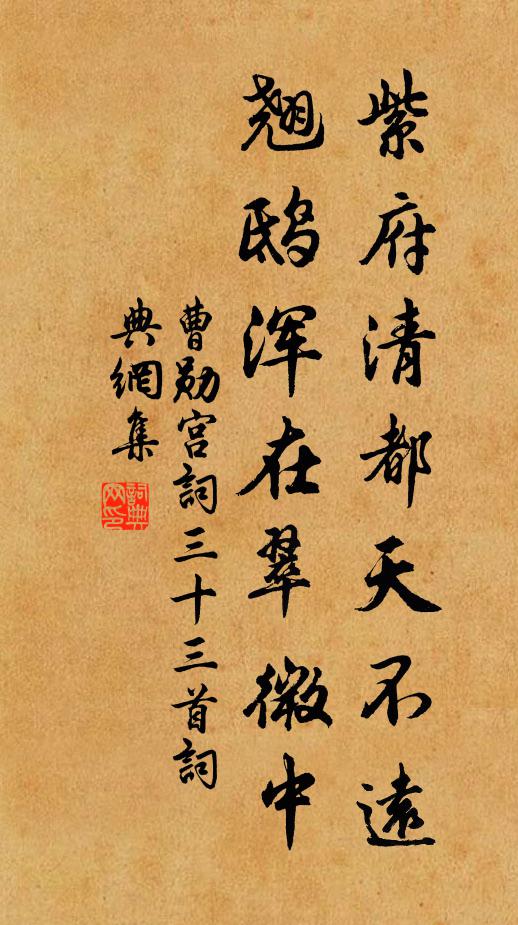 紫府清都天不遠
翹鴟浑在翠微中
曹勛宫詞三十三首詞
典網集
詞典